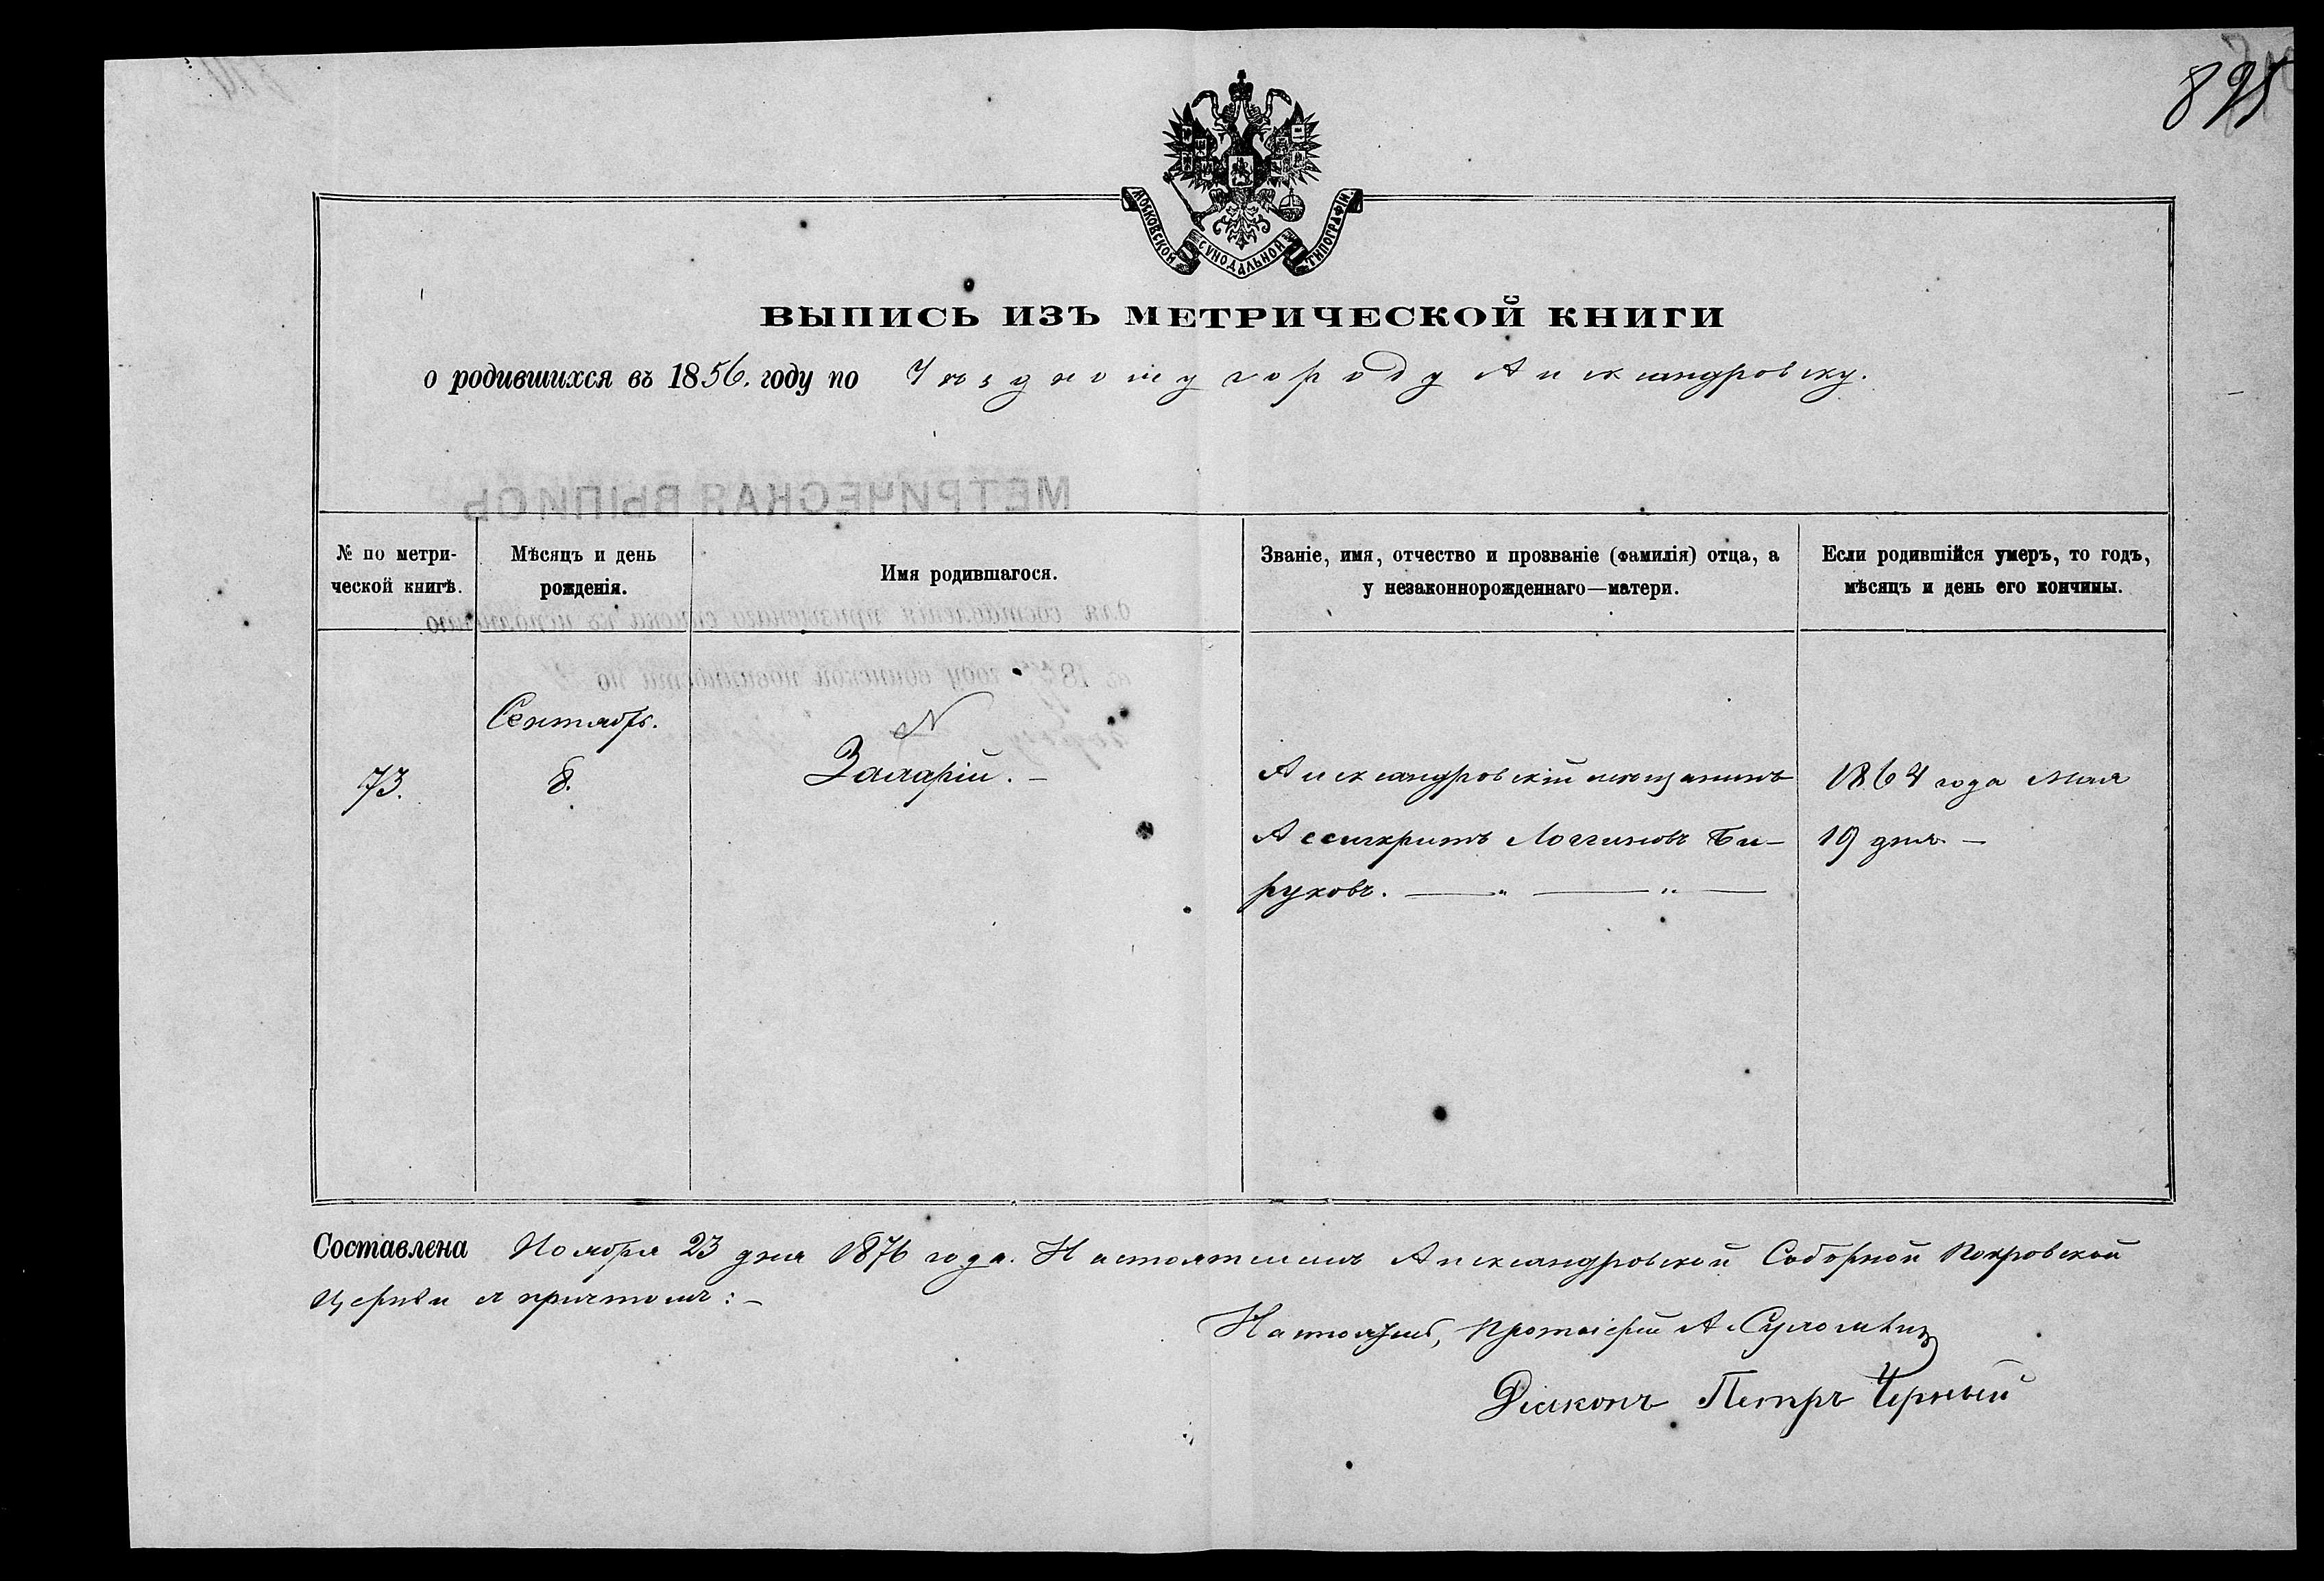 895
МОСКОВСКОЙ СѴНОДАЛЬНОЙ ТИПОГРАФІИ.
ВЫПИСЬ ИЗЪ МЕТРИЧЕСКОЙ КНИГИ
о родившихся въ 1856. году по Уѣздному городу Александровску.
МЕТРИЧЕСКАЯ ВЫПИСЬ
№ по метри-
ческой книгѣ.
Мѣсяцъ и день
рожденія.
Имя родившагося.
Званіе, имя, отчество и прозваніе (фамилія) отца, а
у незаконнорожденнаго—матери.
Если родившійся умеръ, то годъ,
мѣсяцъ и день его кончины.
для составленія призывнаго списка къ исполненію
въ 18 году воинской повинности по
73.
Сентябрь.
8.
N
Захарій. —
Александровскій мѣщанинъ
Ассигкритъ Логгиновъ Би-
руковъ.
1864 года Мая
19 дня. —
Составлена Ноября 23 дня 1876 года. Настоятелемъ Александровской Соборной Покровской
Церкви съ причтомъ: —
Настоятель, Протоіерей А.
Діаконъ Петръ Черный